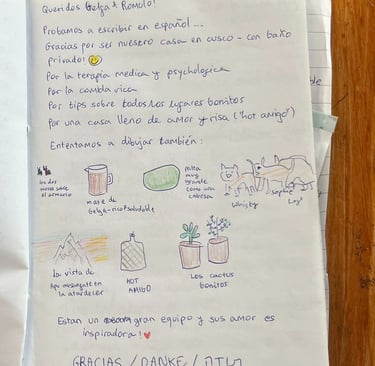 Queridos Gelga & Romolo!
Probamos a escribir en español...
Gracias por ser nuestro casa en cusco - con baño
privado!
Por la terapia medica y psychologica
Por la combia vica
Por tips sobre todos los lugares bonitos
Por una casa lleno de amor y risa ("hot amigo")
Ententamos a dibujar también:
los dos
sobre
el armario
mate de
Gelga - rico + saludable
palta
muy
grande
como una
cabeza
Whisky
Sophie
La vista de
en
la atardecer
HOT
AMIGO
Los cactus
bonitos
Estan un gran equipo y sus amor es
inspiradora!
GRACIAS / DANKE /